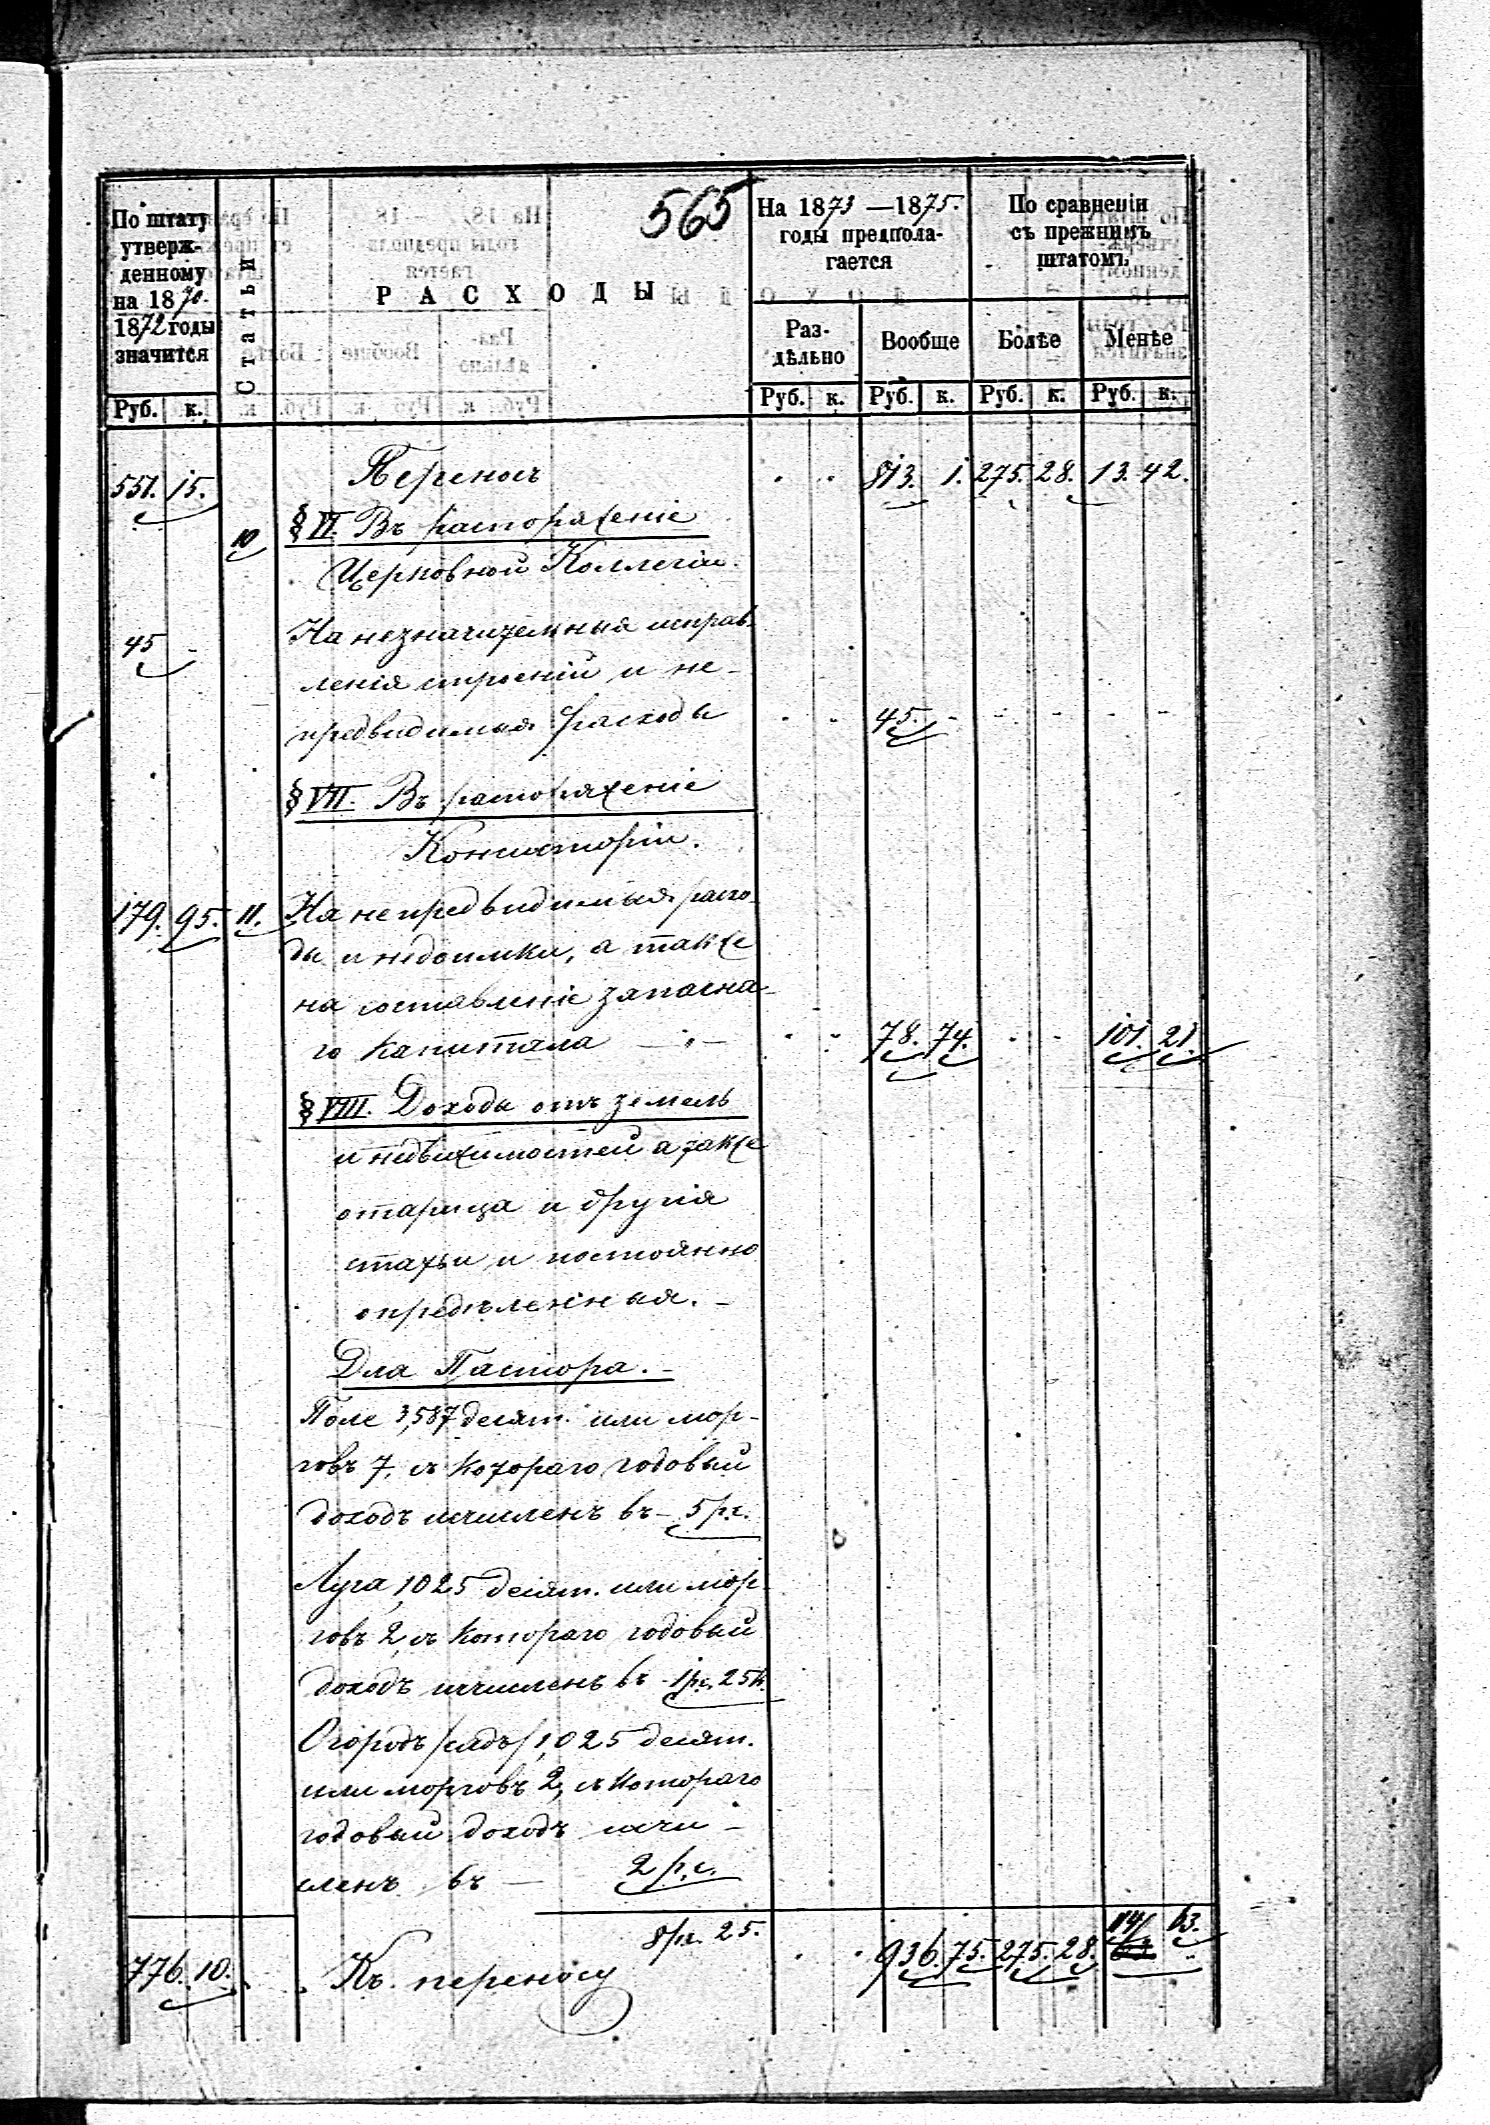 565
По штату утверж-
денному
на 1870-
1872 годы
значится
Статьи
РАСХОДЫ
На 1873 —1875.
годы предпола-
гается
По сравненіи
съ прежнимъ
штатомъ.
Раз-
дѣльно
Вообще
Болѣе
Менѣе
Руб. к.
Руб. к. Руб. к. Руб. к. Руб. к.
551. 15. Переносъ 813. 1. 275. 28. 13. 42.
10 § VI. Въ распоряженіе
Церковной Коллегіи.
45 - На незначительныя исправ-
ленія строеній и не-
предвидимыя расходы 45. - - - - -
§ VII. Въ распоряженіе
Консисторіи.
179. 95. 11. На непредвидимыя расхо-
ды и недоимки, а также
на составленіе запасна-
го капитала — „ — 78. 74. 101. 21.
§ VIII. Доходы отъ земель
и недвижимостей а также
ограды и другія
статьи и постоянно
опредѣленныя. –
Для Пастора. –
Поле 3,587 десят. или мор-
говъ 7, съ котораго годовый
доходъ исчисленъ въ – 5 р.с.
Луга 1,025 десят. или мор-
говъ 2, съ котораго годовый
доходъ исчисленъ въ - 1 р.с. 25 к.
Огородъ /садъ/ 1,025 десят.
или морговъ 2, съ котораго
годовый доходъ исчи-
сленъ въ — 2 р.с.
8 р.с. 25.
776. 10. Къ переносу 936. 75. 275. 28. 114 63.